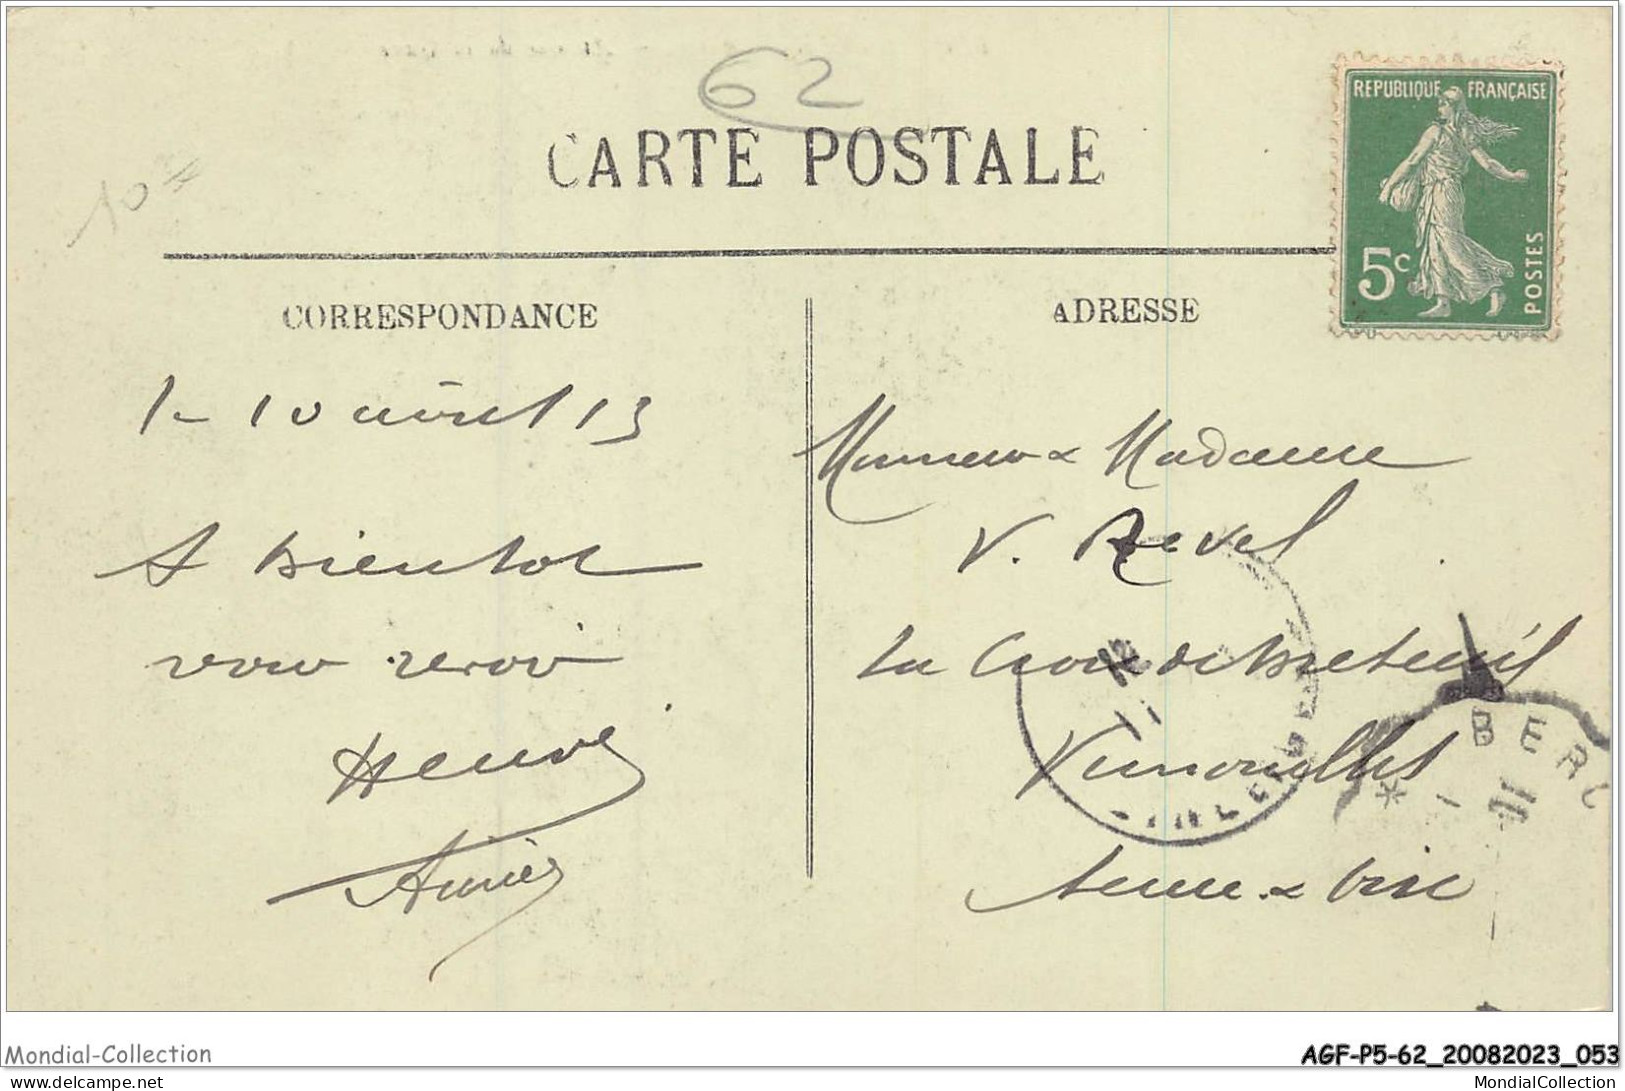 62
CARTE POSTALE
10
REPUBLIQUE FRANÇAISE
5c
POSTES
CORRESPONDANCE
ADRESSE
1- 10 avril 13
A bientot
vous revoir
Monsieur & Madame
V. Revel
La Croix de Breteuil
Vernouillet
Seine & Oise
BERC
Mondial-Collection
AGF-P5-62_20082023_053
www.delcampe.net
MondialCollection